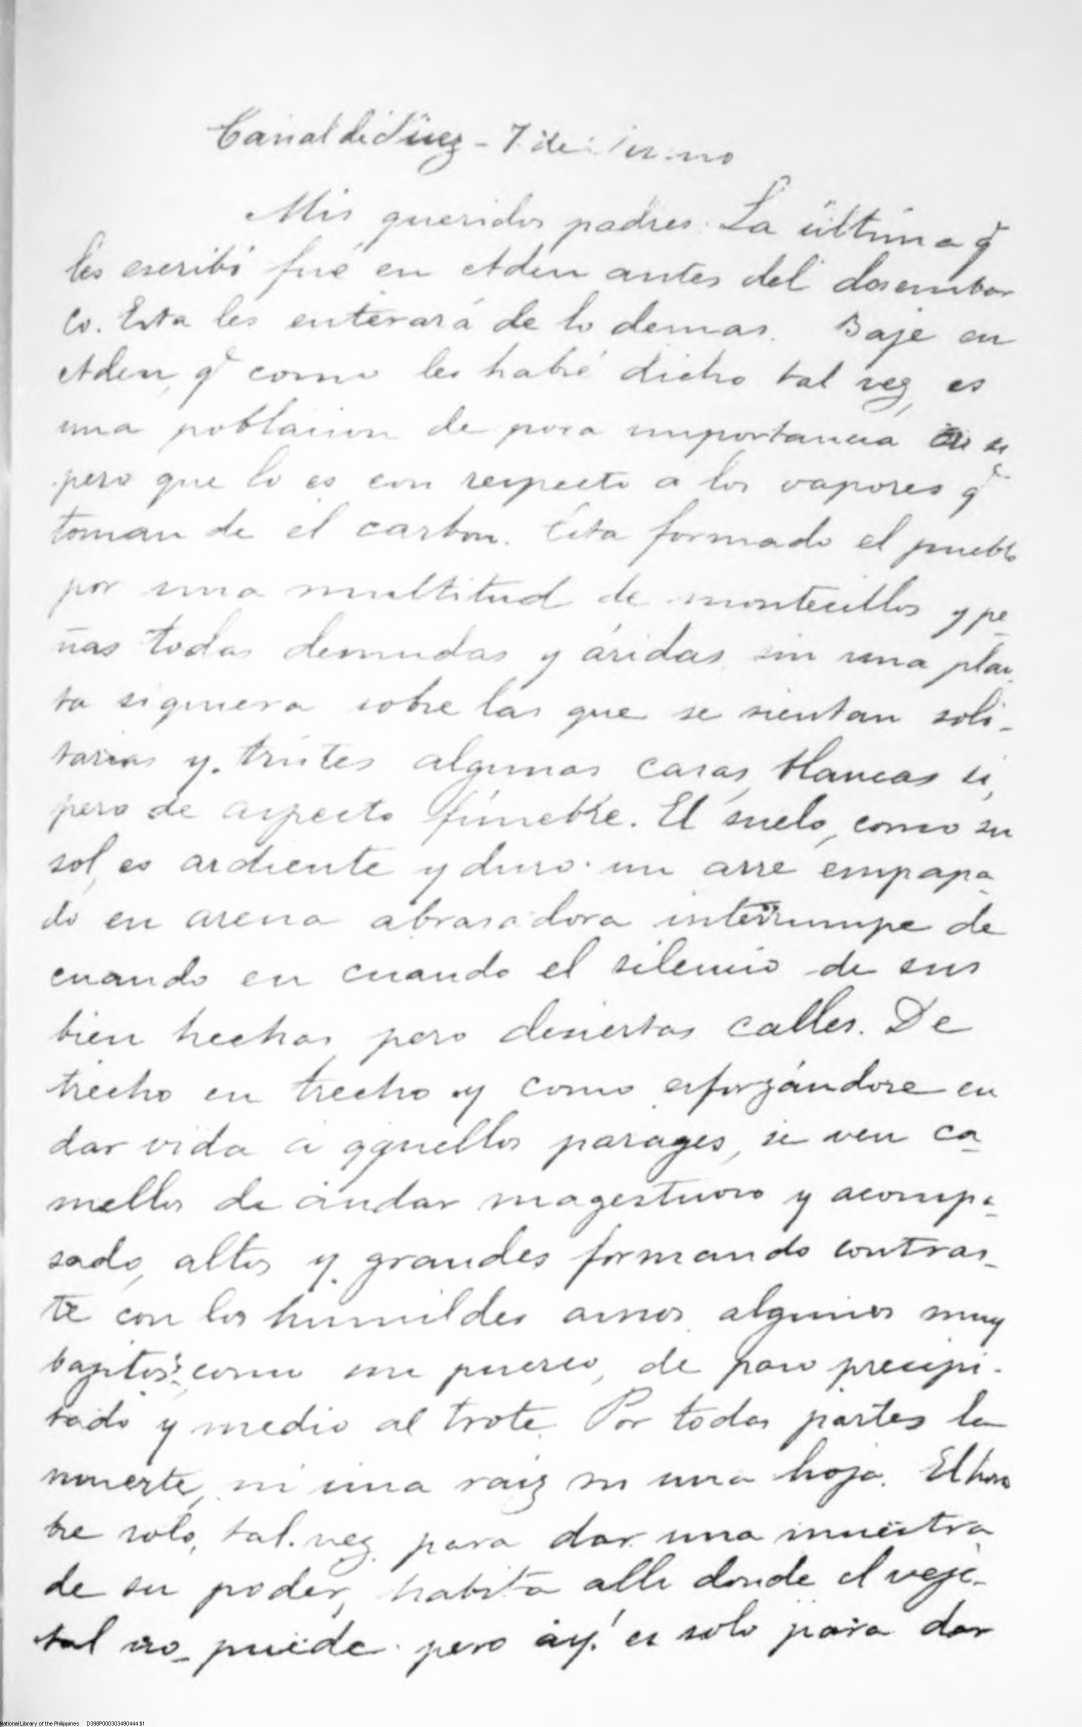 Canal de Suez - 7 de Junio
Mis queridos padres. La última q̃
les escribí fué en Aden antes del desembar
co. Esta les enterará de lo demas. Bajé en
Aden, q̃ como les habré dicho tal vez, es
una poblacion de poca importancia en si
pero que lo es con respecto a los vapores q̃
toman de el carbon. Esta formado el pueblo
por una multitud de montecillos y pe-
ñas todas desnudas y áridas sin una plan
ta siquiera sobre las que se sientan soli-
tarias y tristes algunas casas, blancas si,
pero de aspecto fúnebre. El suelo, como su
sol, es ardiente y duro. un aire empapa-
do en arena abrasadora interrumpe de
cuando en cuando el silencio de sus
bien hechas pero desiertas calles. De
trecho en trecho y como esforzándose en
dar vida á aquellos parages, se ven ca-
mellos de andar magestuoso y acompa-
sado, altos y grandes formando contras-
te con los humildes asnos algunos muy
bajitos como un puerco, de paso precipi-
tado y medio al trote. Por todas partes la
muerte, ni una raiz ni una hoja. El hom
bre solo, tal vez para dar una muestra
de su poder, habita alli donde el veje-
tal no puede. pero ay! es solo para dar
National Library of the Philippines